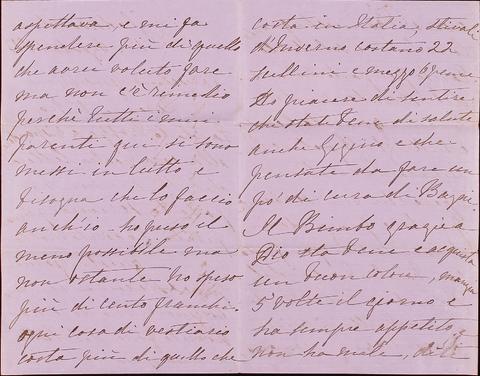 aspettava e mi fa
spendere più di quello
che avrei voluto fare
ma non c'è rimedio
perchè tutti i miei
parenti qui si sono
messi in lutto e
bisogna che lo faccio
anch'io - ho speso il
meno possibile ma
non ostante ho speso
più di cento franchi.
ogni cosa di vestiario
costa più di quello che
costa in Italia, stivali
d'Inverno costano 22
scellini e mezzo
Ho piacere di sentire
che state bene di salute
anche Gigino e che
pensate da fare un
pò di cura di Bagni.
Il Bimbo grazie a
Dio sta bene e acquista
un buon colore, mangia
5 volte il giorno e
ha sempre appetito,
non ha male, di